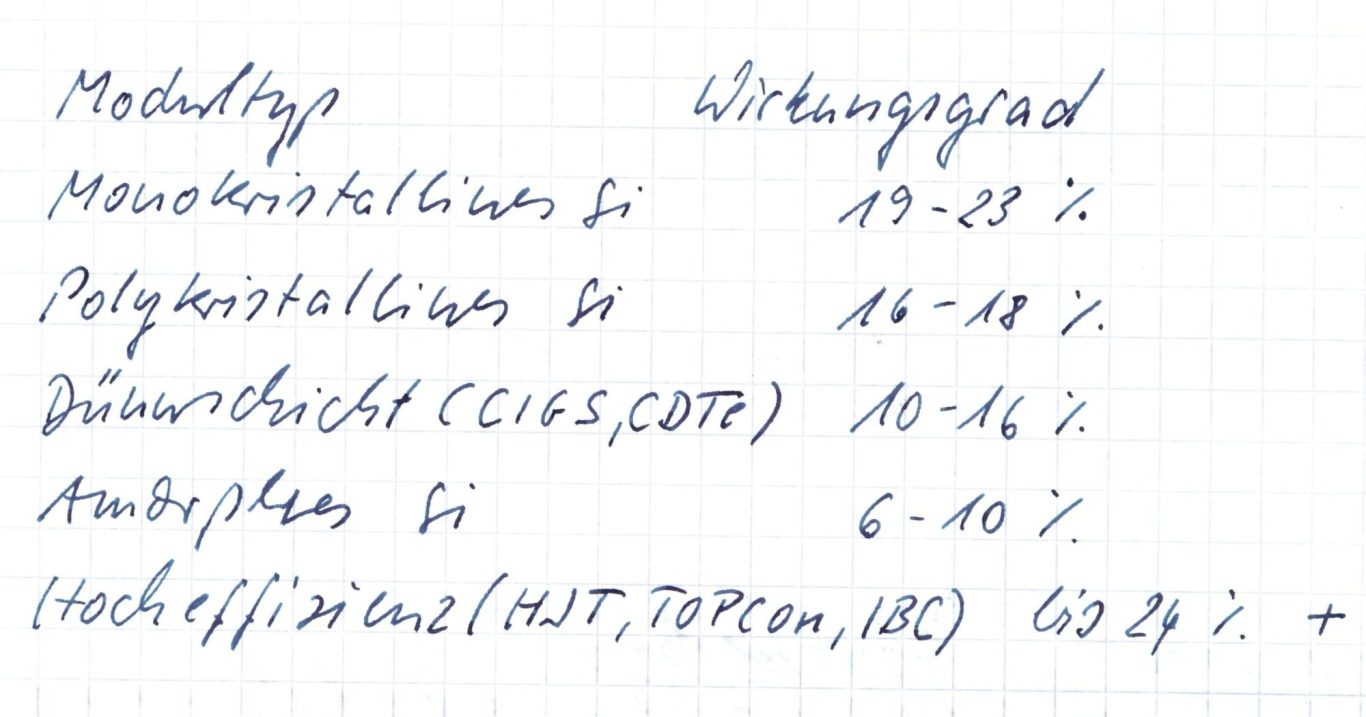 Modultyp Wirkungsgrad
Monokristallines Si 19-23 %
Polykristallines Si 16-18 %
Dünnschicht (CIGS, CDTe) 10-16 %
Amorphes Si 6-10 %
Hocheffizienz (HJT, TOPCon, IBC) bis 24 % +